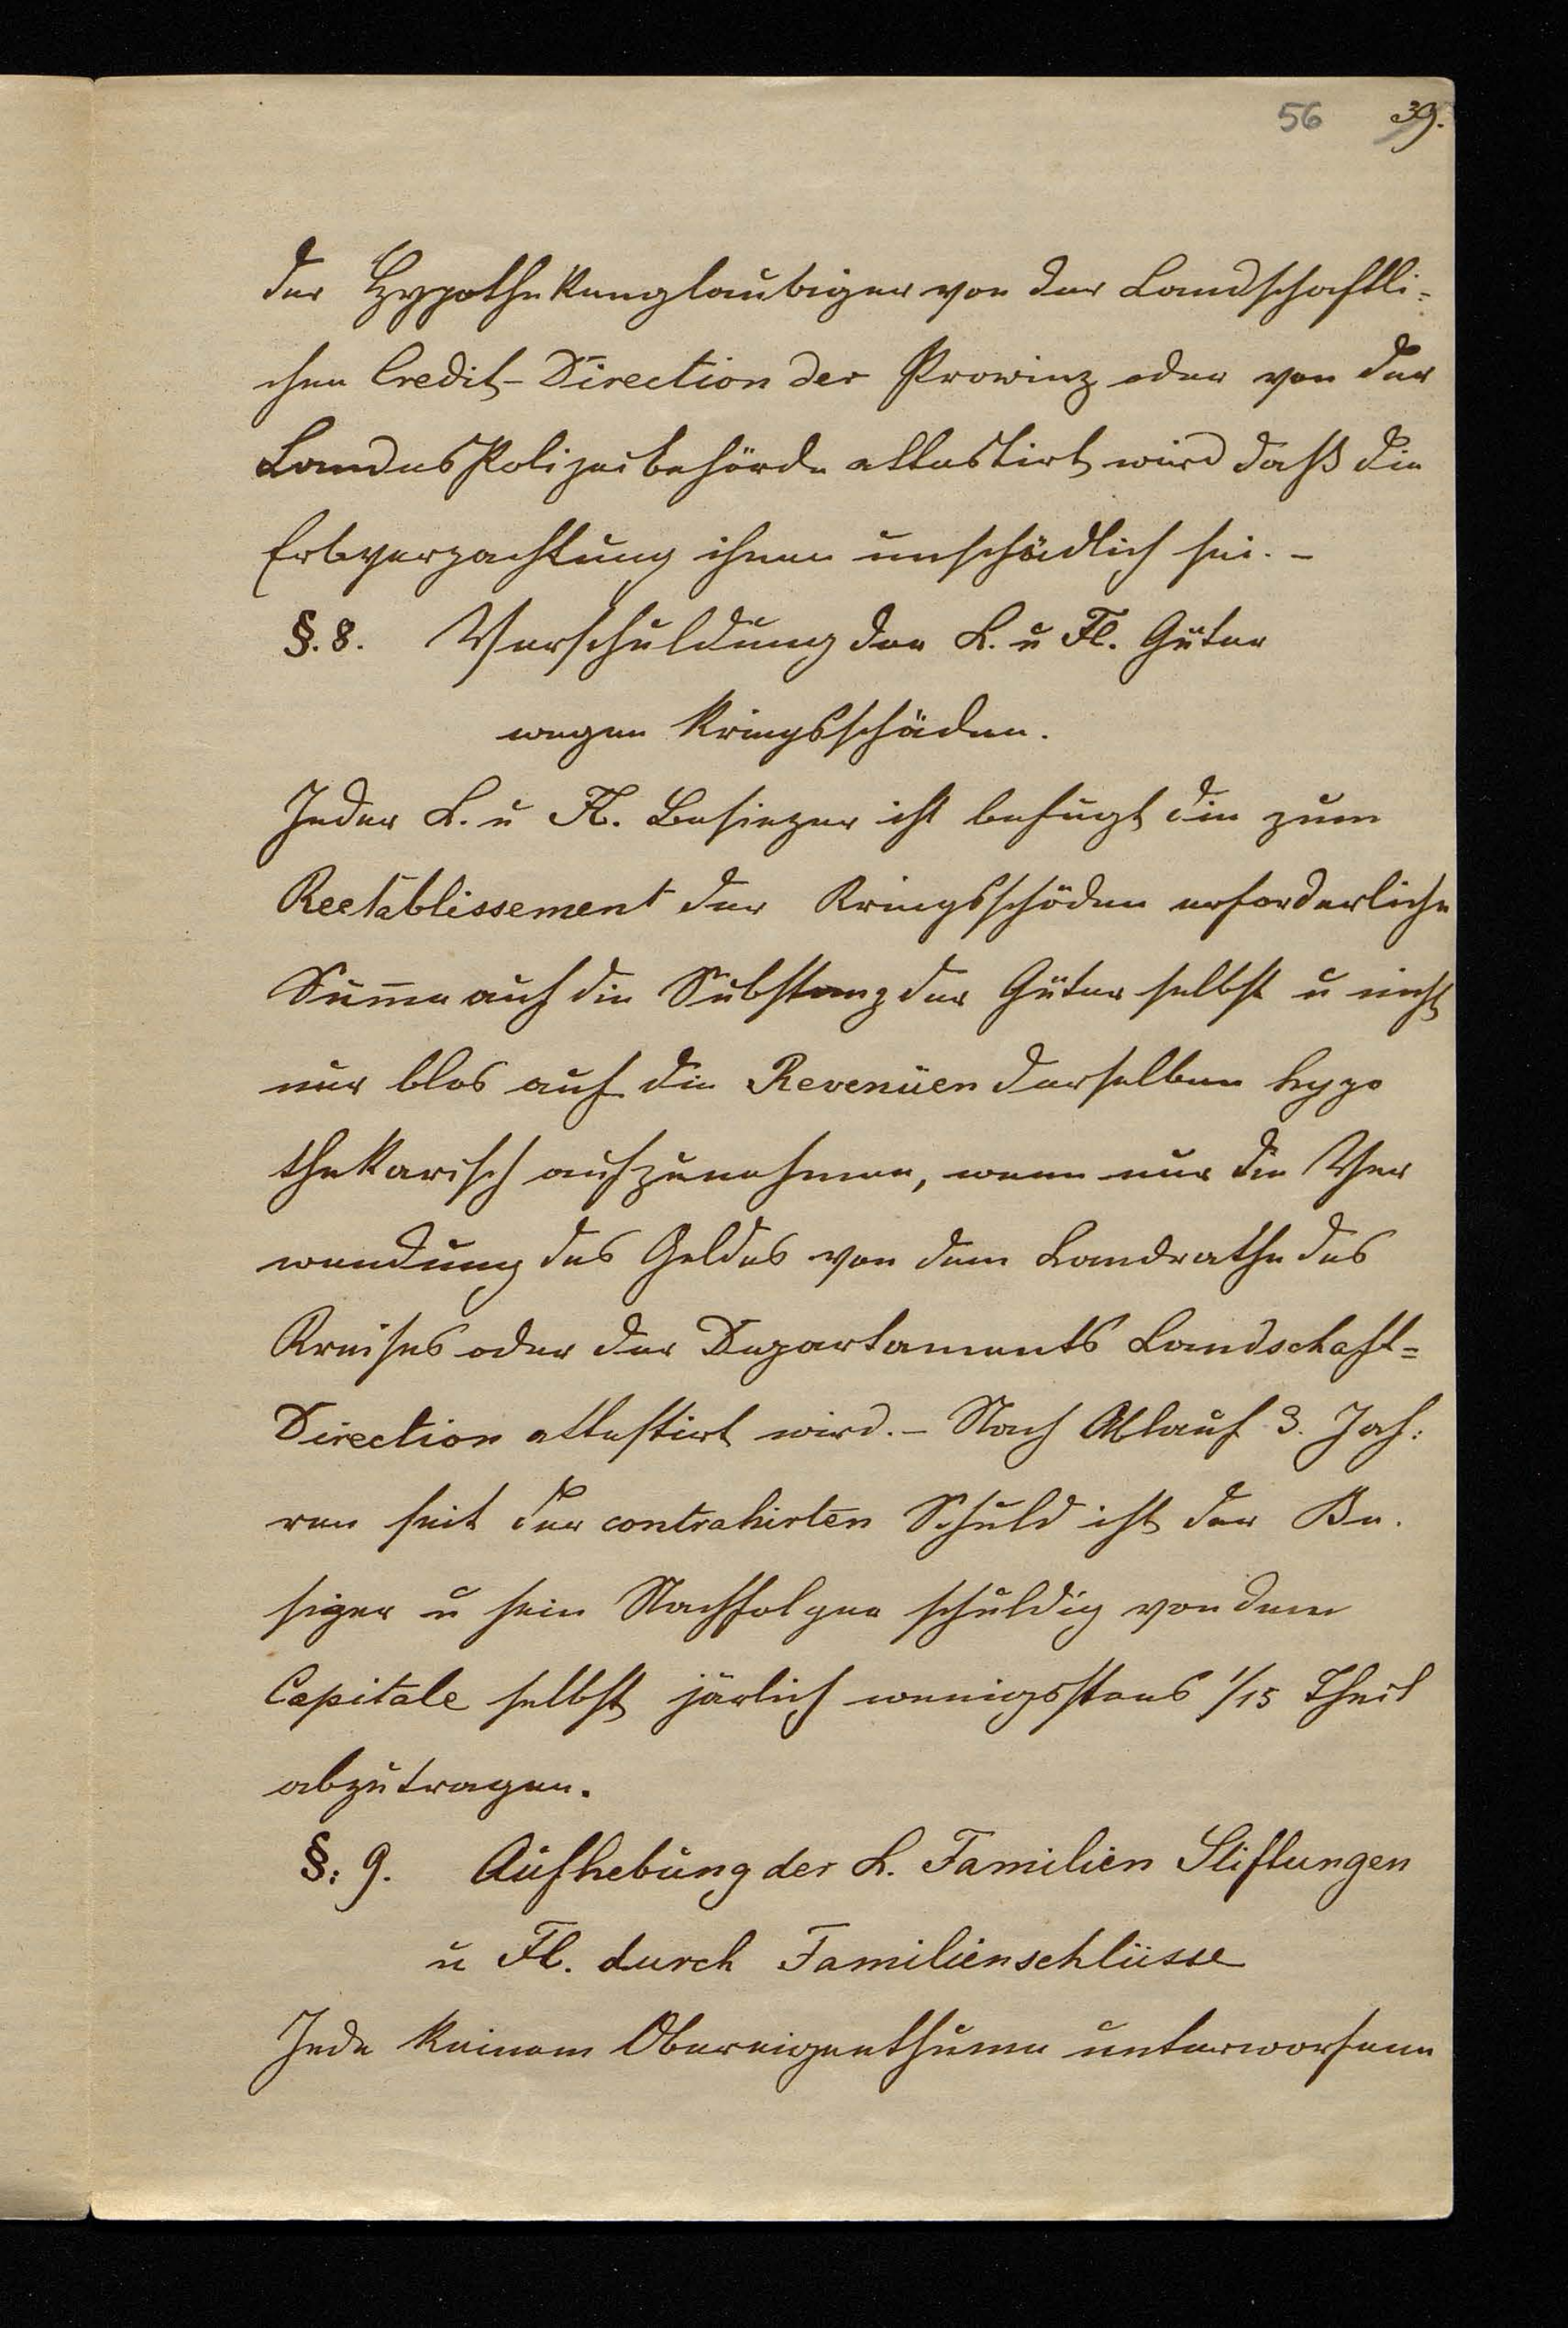 56 39.
der Hypothekenglaubiger von der Landschaftli-
chen Credit-Direction der Prowinz oder von der
LandesPolizeibehörde attestirt wird daß die
Erbverpachtung ihnen unschädlich sei. -
§. 8. Verschuldung der L. u Fl. Güter
wegen Kriegsschäden.
Jeder L. u Fl. Besiezer ist befugt die zum
Reetablissement der Kriegsschäden erforderliche
Sum̄e auf die Substanz der Güter selbst u nicht
nur blos auf die Revenüen derselben hypo
thekarisch aufzunehmen, wenn nur die Ver
wendung des Geldes von dem Landrathe des
Kreises oder der Departaments Landschaft=
Direction attestirt wird. - Nach Ablauf 3. Jah:
ren seit der contrahirten Schuld ist der Be.
sizer u sein Nachfolger schuldig von dem
Capitale selbst järlich wenigsstens 1/15 Theil
abzutragen.
§: 9. Aufhebung der L. Familien Stiftungen
u Fl. durch Familienschlüsse
Jede keinem Obereigenthume unterworfene